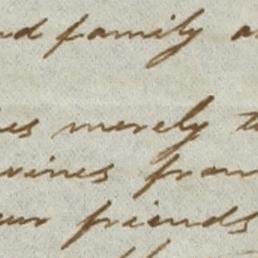 nd family a
es merely t
vines from
our friends